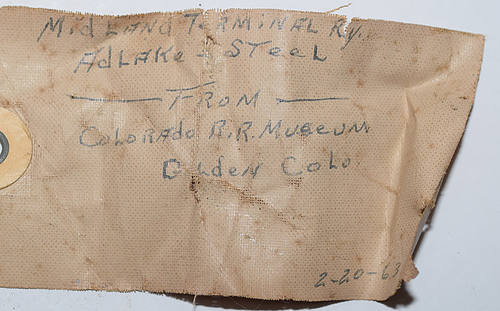 Midland Terminal Ry.
Adlake - Steel
— From —
Colorado R.R. Museum
Golden Colo
2-20-63